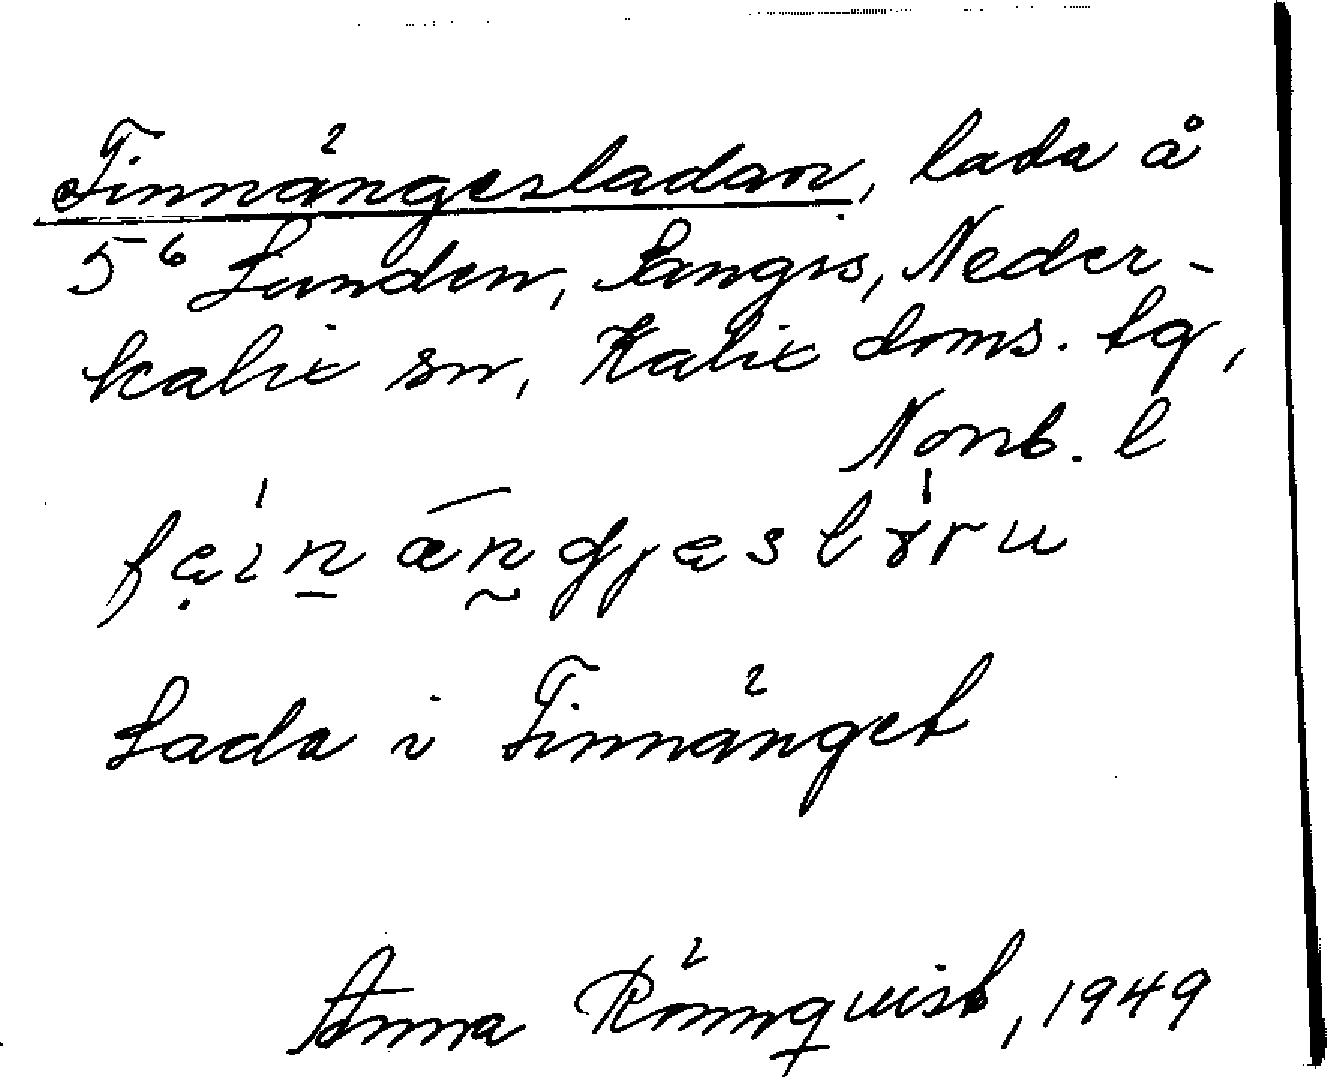 Finnängesladan, lada å
5⁶ Lunden, Sangis, Neder-
kalix sn, Kalix doms. tg,
Norrb. l
Lada i Finnänget
Anna Rönnqvist, 1949